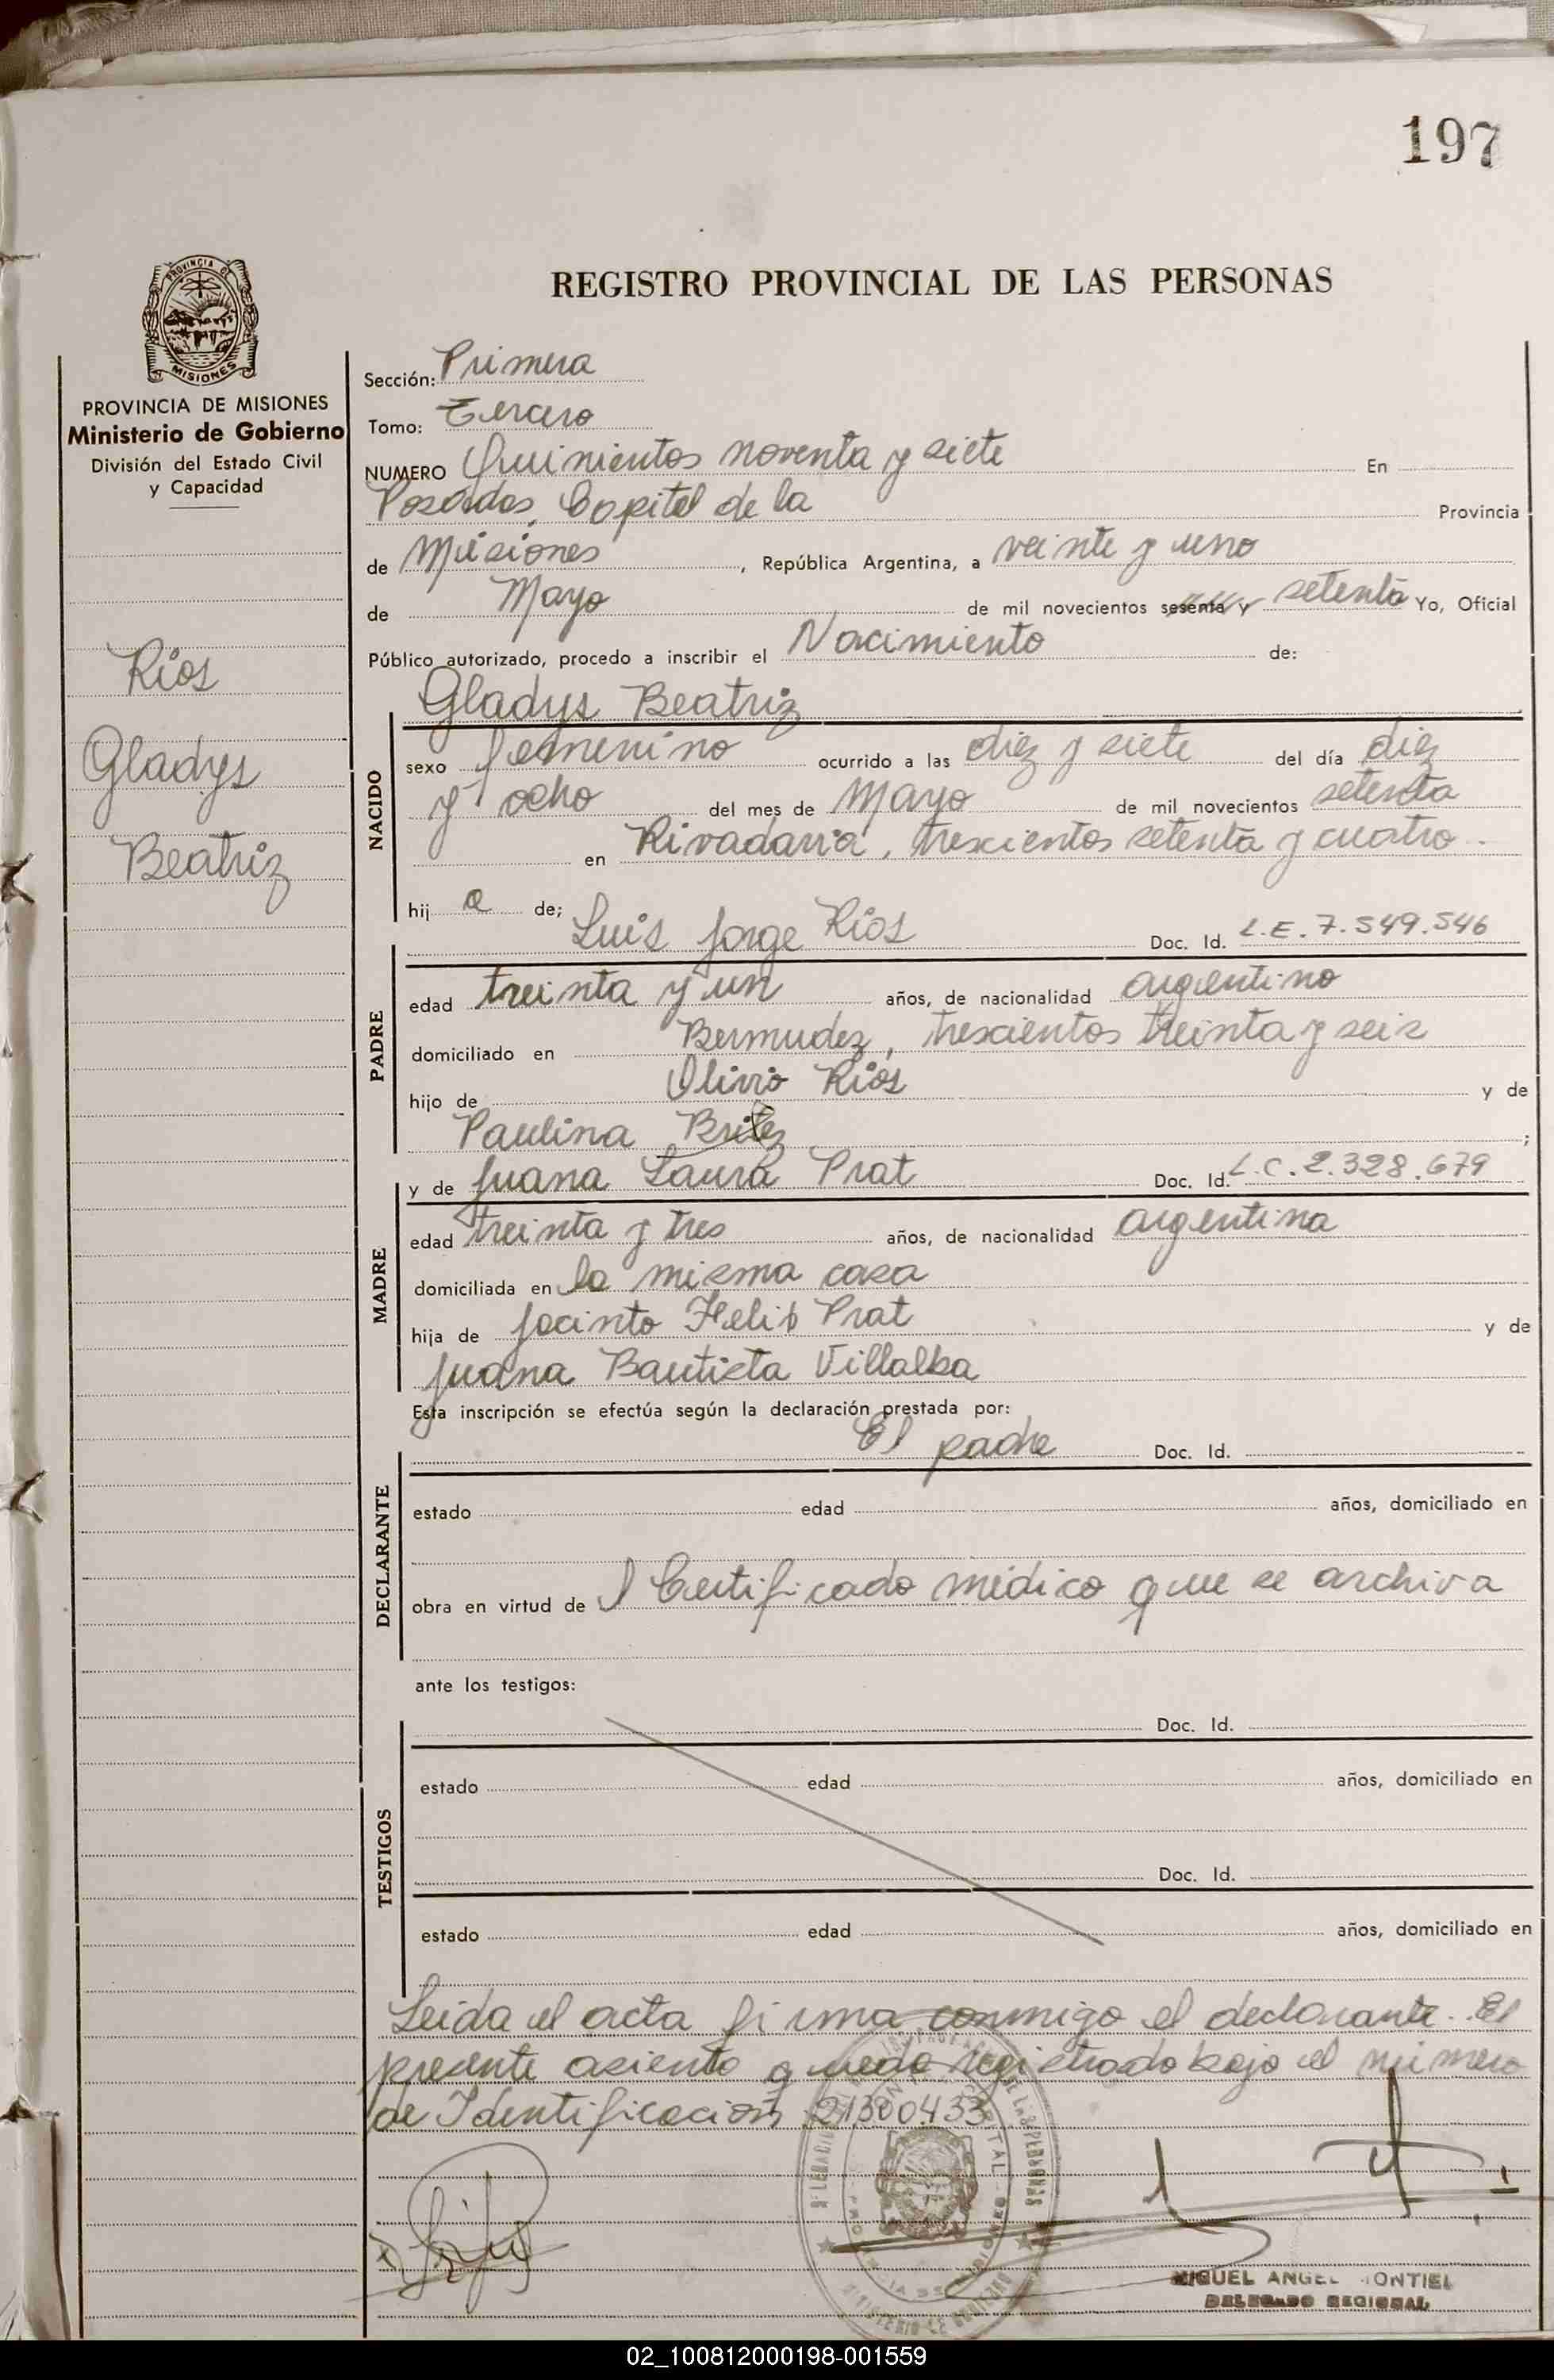 197
PROVINCIA DE
MISIONES
PROVINCIA DE MISIONES
Ministerio de Gobierno
División del Estado Civil
y Capacidad
Ríos
Gladys
Beatriz
REGISTRO PROVINCIAL DE LAS PERSONAS
Sección: Primera
Tomo: Tercero
NUMERO Quinientos noventa y siete En
Posadas, Capital de la Provincia
de Misiones, República Argentina, a veinte y uno
de Mayo de mil novecientos sesenta y setenta Yo, Oficial
Público autorizado, procedo a inscribir el Nacimiento de:
Gladys Beatriz
NACIDO
sexo femenino ocurrido a las diez y siete del día diez
y ocho del mes de Mayo de mil novecientos setenta
en Rivadavia, trescientos setenta y cuatro
hij a de; Luis Jorge Ríos Doc. Id. L.E. 7.549.546
PADRE
edad treinta y un años, de nacionalidad argentino
domiciliado en Bermudez, trescientos treinta y seis
hijo de Olivio Ríos y de
Paulina Britez ;
y de Juana Laura Prat Doc. Id. L.C. 2.328.679
MADRE
edad treinta y tres años, de nacionalidad argentina
domiciliada en la misma casa
hija de Jacinto Felis Prat y de
Juana Bautista Villalba
Esta inscripción se efectúa según la declaración prestada por:
El padre Doc. Id.
DECLARANTE
estado edad años, domiciliado en
obra en virtud de l Certificado médico que se archiva
ante los testigos:
Doc. Id.
TESTIGOS
estado edad años, domiciliado en
Doc. Id.
estado edad años, domiciliado en
Leida el acta firma conmigo el declarante. El
presente asiento queda registrado bajo el número
de Identificación 21300433
MIGUEL ANGEL MONTIEL
DELEGADO REGIONAL
02_100812000198-001559